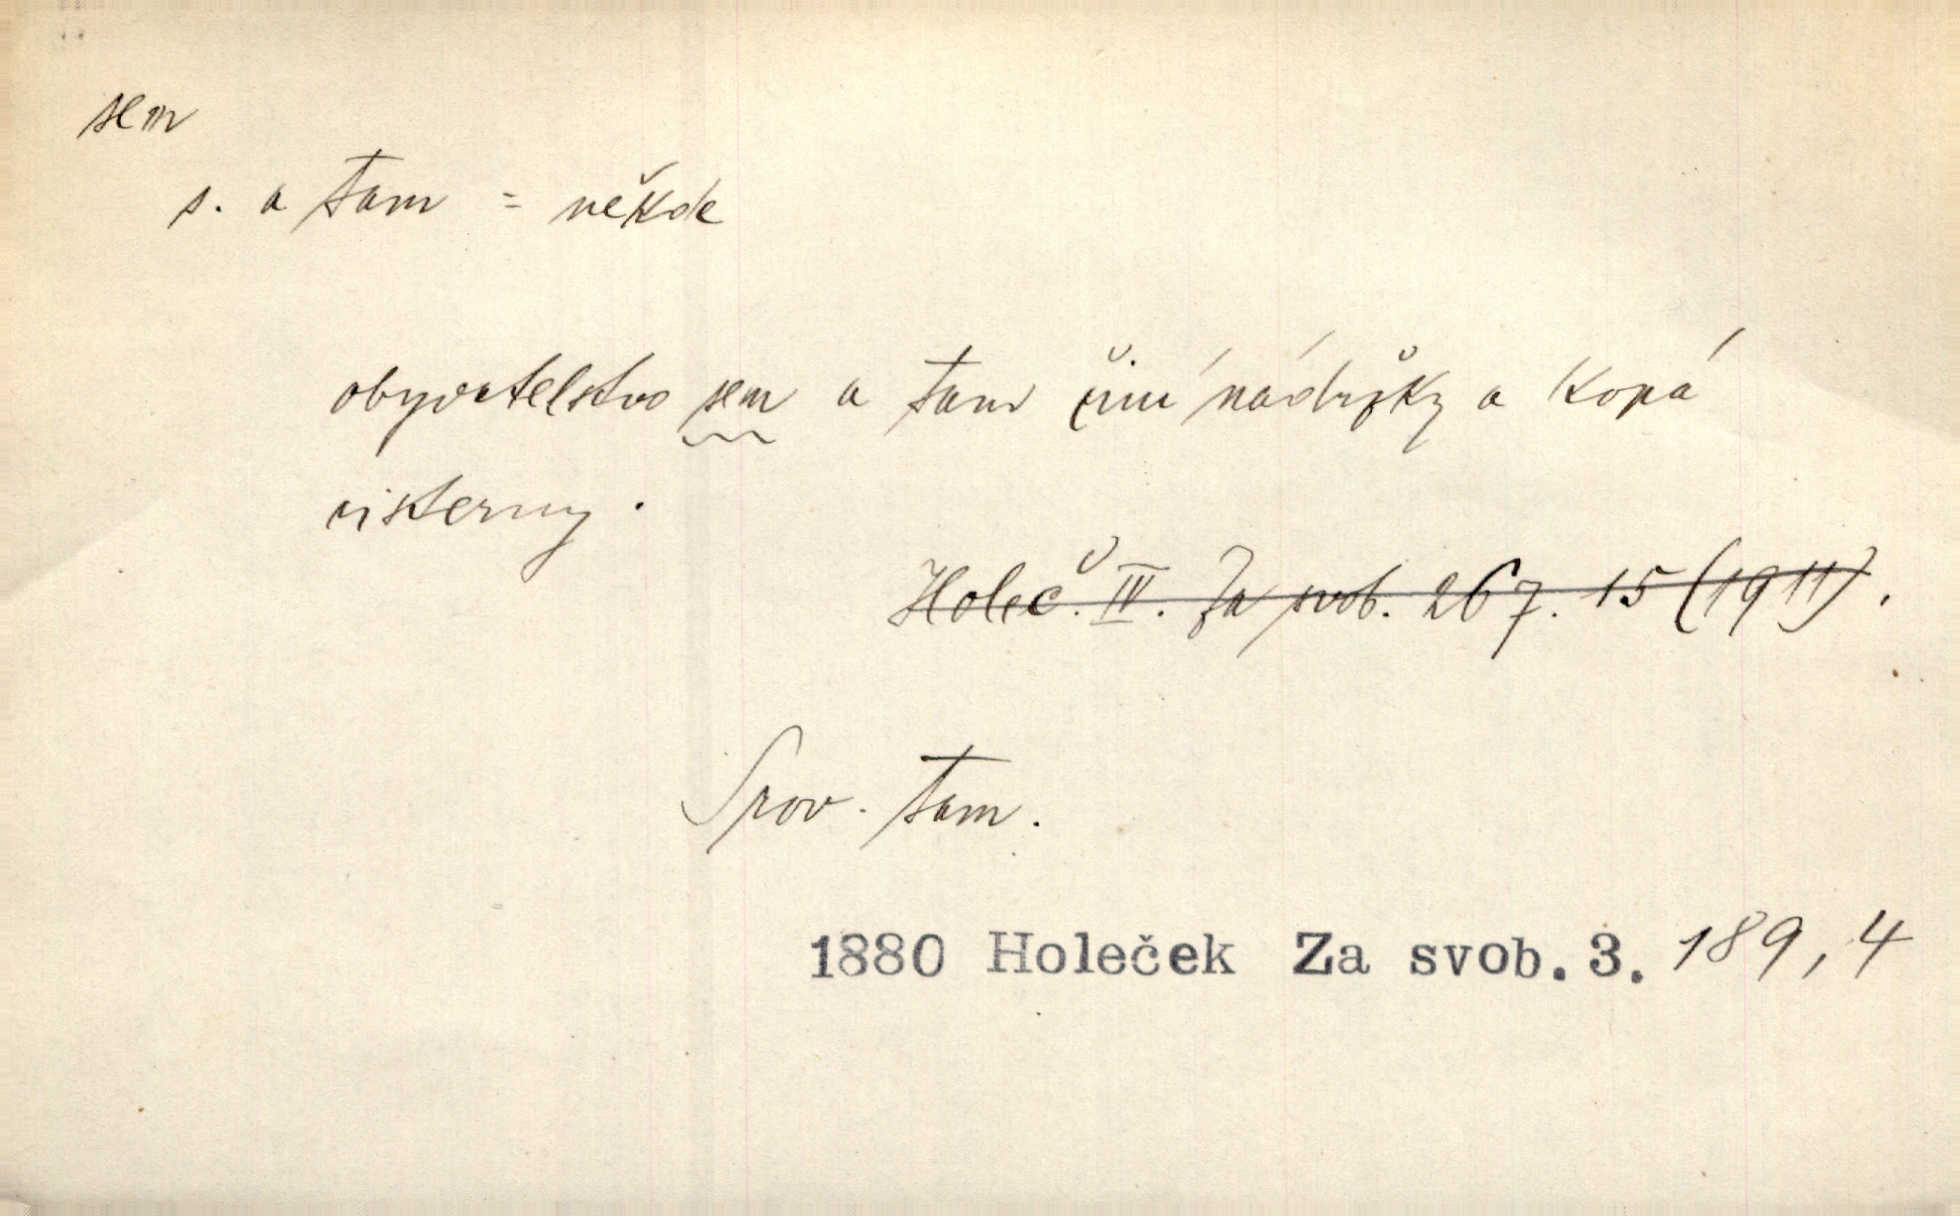 sem
s. a tam = někde
obyvatelstvo sem a tam činí nádržky a kopá
cisterny.
Holeč. IV. Za svob. 267. 15 (1911).
Srov. tam.
1880 Holeček Za svob. 3. 189, 4